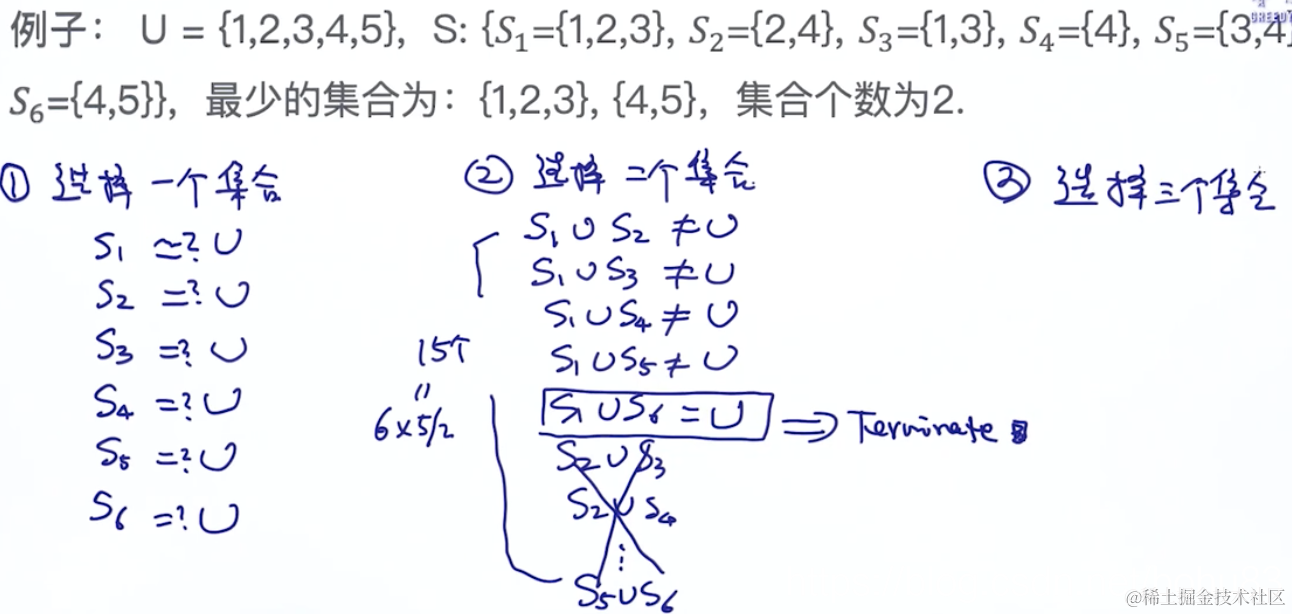 例子： U = {1,2,3,4,5}, S: {S₁={1,2,3}, S₂={2,4}, S₃={1,3}, S₄={4}, S₅={3,4}
S₆={4,5}}, 最少的集合为：{1,2,3}, {4,5}, 集合个数为2.
① 选择一个集合
S₁ =? U
S₂ =? U
S₃ =? U
S₄ =? U
S₅ =? U
S₆ =? U
② 选择二个集合
S₁ ∪ S₂ ≠ U
S₁ ∪ S₃ ≠ U
S₁ ∪ S₄ ≠ U
S₁ ∪ S₅ ≠ U
S₁ ∪ S₆ = U ⇒ Terminate
S₂ ∪ S₃
S₂ ∪ S₄
⋮
S₅ ∪ S₆
15个
=
6×5/2
③ 选择三个集合
@稀土掘金技术社区